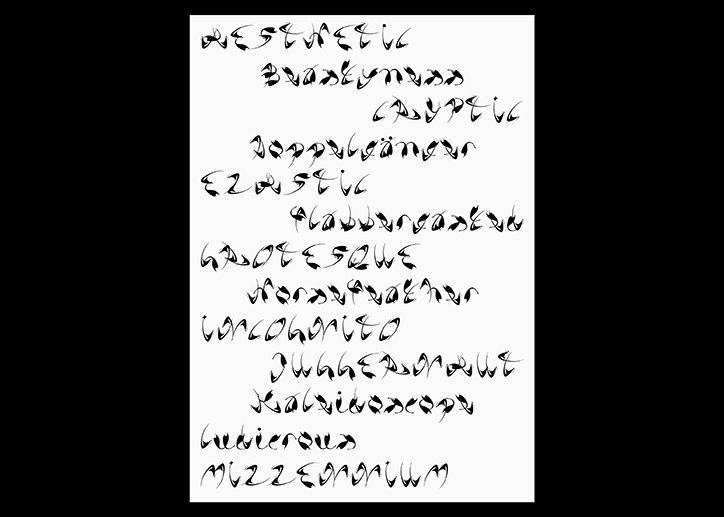 AESTHETIC
Beastyness
CRYPTIC
Doppelgänger
ELASTIC
Flabbergasted
GROTESQUE
HorseFeather
INCOGNITO
JUGGERNAUT
Kaleidoscope
Ludicrous
MILLENNIUM